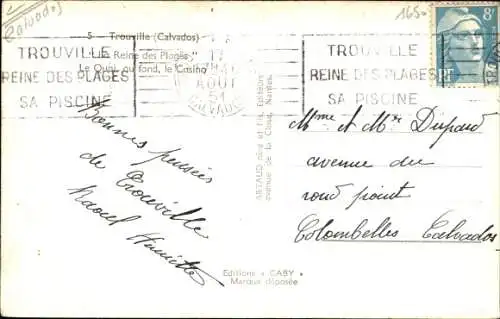 Calvados
1650
5 - Trouville (Calvados)
"La Reine des Plages"
Le Quai, au fond, le Casino
TROUVILLE
REINE DES PLAGES
SA PISCINE
17
AOUT
CALVADOS
TROUVILLE
REINE DES PLAGES
SA PISCINE
8F
RF
Bonnes pensées
de Trouville
Raoul Henriette
ARTAUD Père et Fils, Éditeurs
avenue de la Close, Nantes.
Editions « GABY »
Marque déposée
Mme et Mr Dupard
avenue du
rond point
Colombelles Calvados